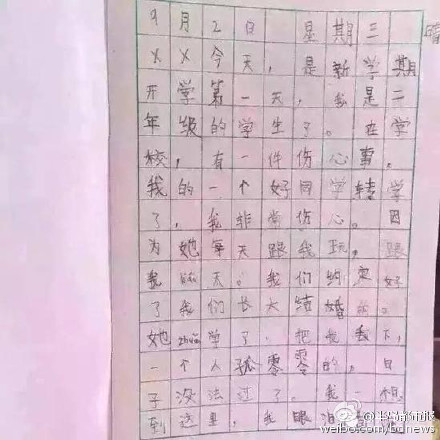 9月2日 星期三
XX今天，是新学期
开学第一天，我是二
年级的学生了。在学
校，有一件伤心事。
我的一个好同学转学
了，我非常伤心。因
为她每天跟我玩，跟
我聊天。我们约定好
了我们长大结婚的。
她zhuǎn学了，把我丢下，
一个人孤零零的，日
子没法过了。我一想
到这里，我眼泪
weibo.com/bdnews